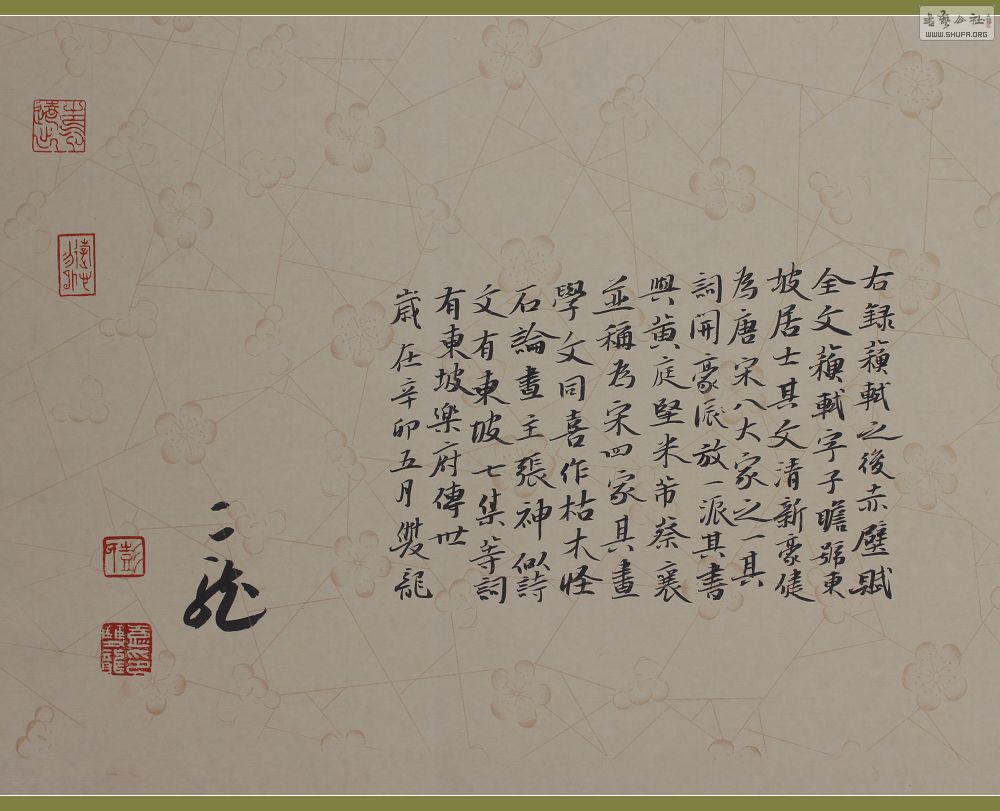 右録蘓軾之後赤壁賦
全文蘓軾字子瞻號東
坡居士其文清新豪健
為唐宋八大家之一其
詞開豪放一派其書
與黄庭堅米芾蔡襄
並稱為宋四家其畫
學文同喜作枯木怪
石論畫主張神似詩
文有東坡七集等詞
有東坡樂府傳世
歲在辛卯五月雙龍
二龍
書藝公社
WWW.SHUFA.ORG